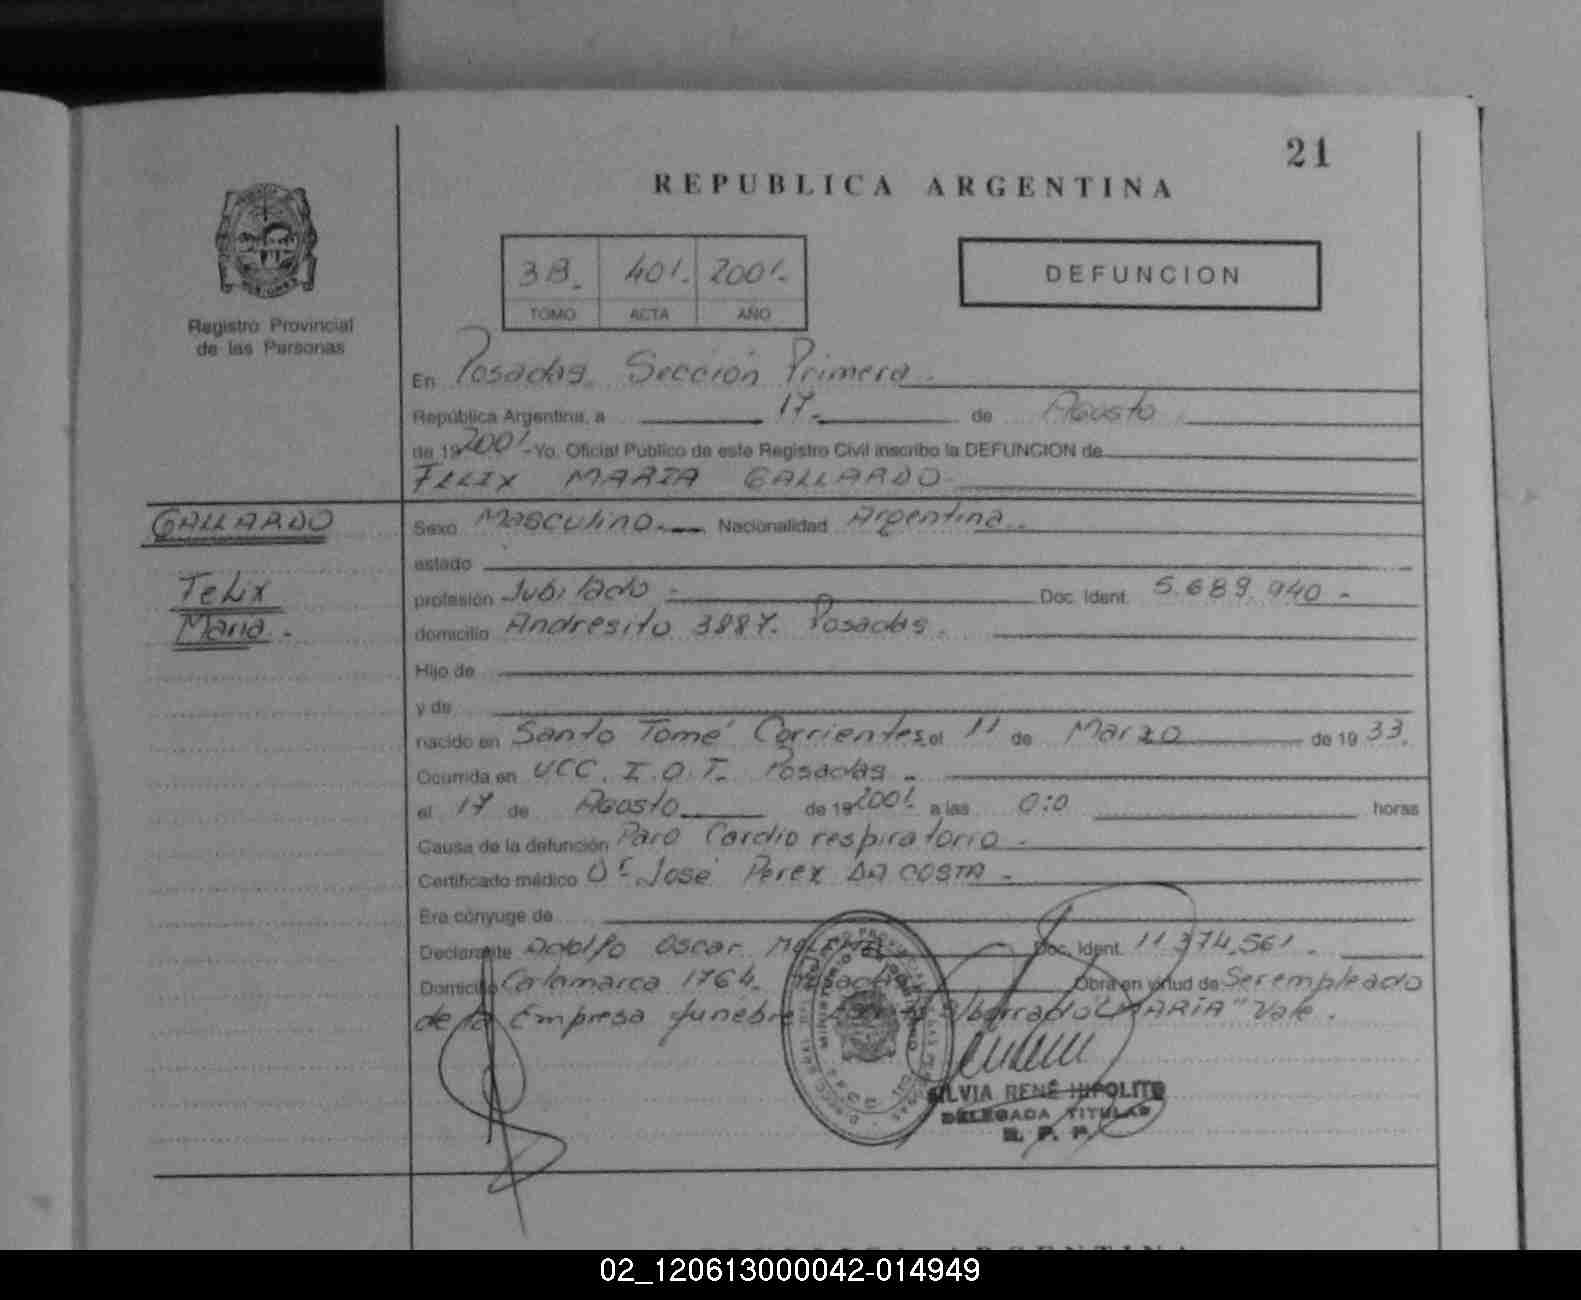 21
REPUBLICA ARGENTINA
3B. 401. 2001.
TOMO ACTA AÑO
DEFUNCION
Registro Provincial
de las Personas
En Posadas. Sección Primera.
República Argentina, a 17. de Agosto.
de 19 2001.- Yo, Oficial Público de este Registro Civil inscribo la DEFUNCION de
FELIX MARIA GALLARDO.
GALLARDO
Felix
Maria.
Sexo Masculino. Nacionalidad Argentina.
estado
profesión Jubilado - Doc. Ident. 5.689.940 -
domicilio Andresito 3887. Posadas.
Hijo de
y de
nacido en Santo Tomé Corrientes, el 11 de Marzo de 19 33.
Ocurrida en UCC. I.O.T. Posadas.
el 17 de Agosto de 19 2001. a las 0:0 horas
Causa de la defunción Paro Cardio respiratorio.
Certificado médico Dr José Perez DA COSTA -
Era cónyuge de
Declarante Adolfo Oscar Doc. Ident. 11.374.561.
Domicilio Catamarca 1764. Posadas Obra en virtud de Ser empleado
de la Empresa funebre "MARIA" Vale.
MINISTERIO DE GOBIERNO
SILVIA RENÉ HIPOLITO
DELEGADA TITULAR
R. P. P.
REPUBLICA ARGENTINA
02_120613000042-014949